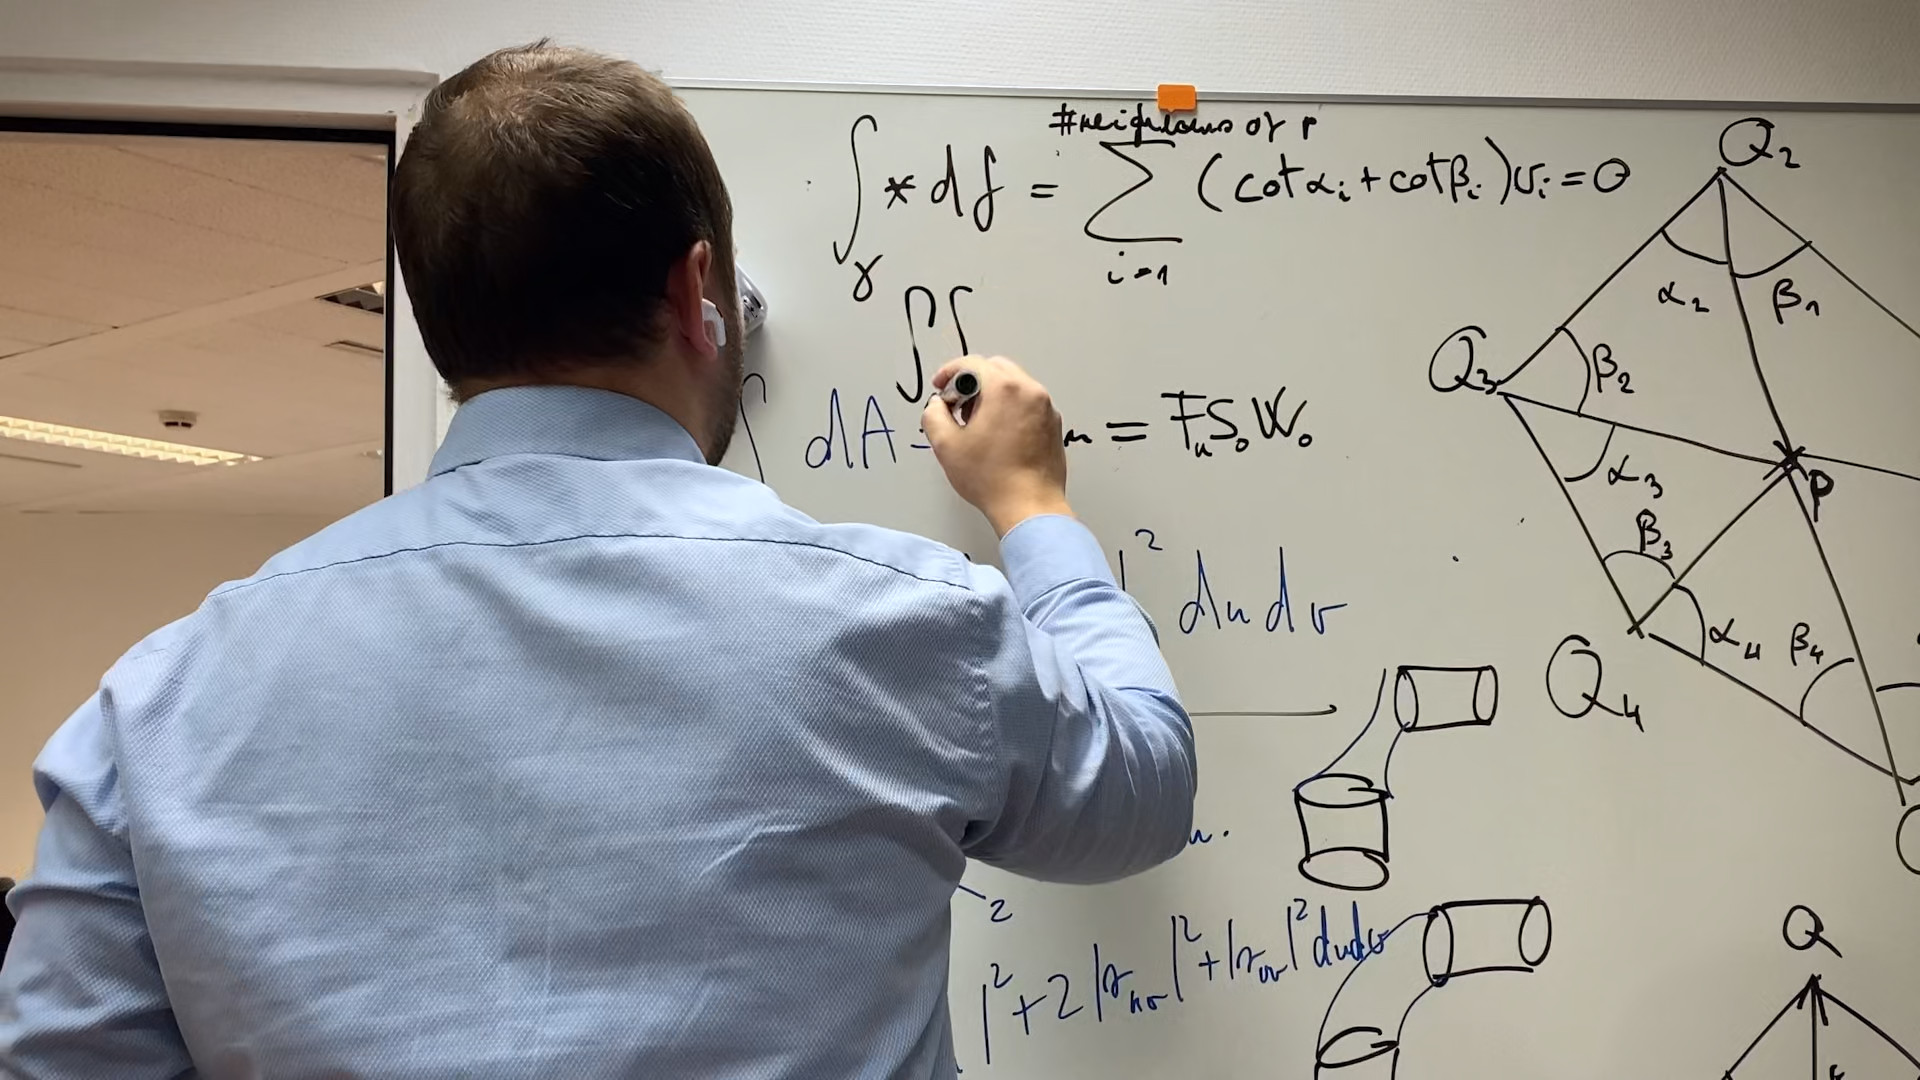 #neighbours of P
∫_γ *df = Σ_{i=1} (cot α_i + cot β_i) v_i = 0
∬
∫ dA = = F_u S_0 W_0
|² du dv
u.
2
|² + 2|r_uv|² + |r_vv|² du dv
Q_2
α_2 β_1
Q_3 β_2
α_3 P
β_3
α_4 β_4
Q_4
Q